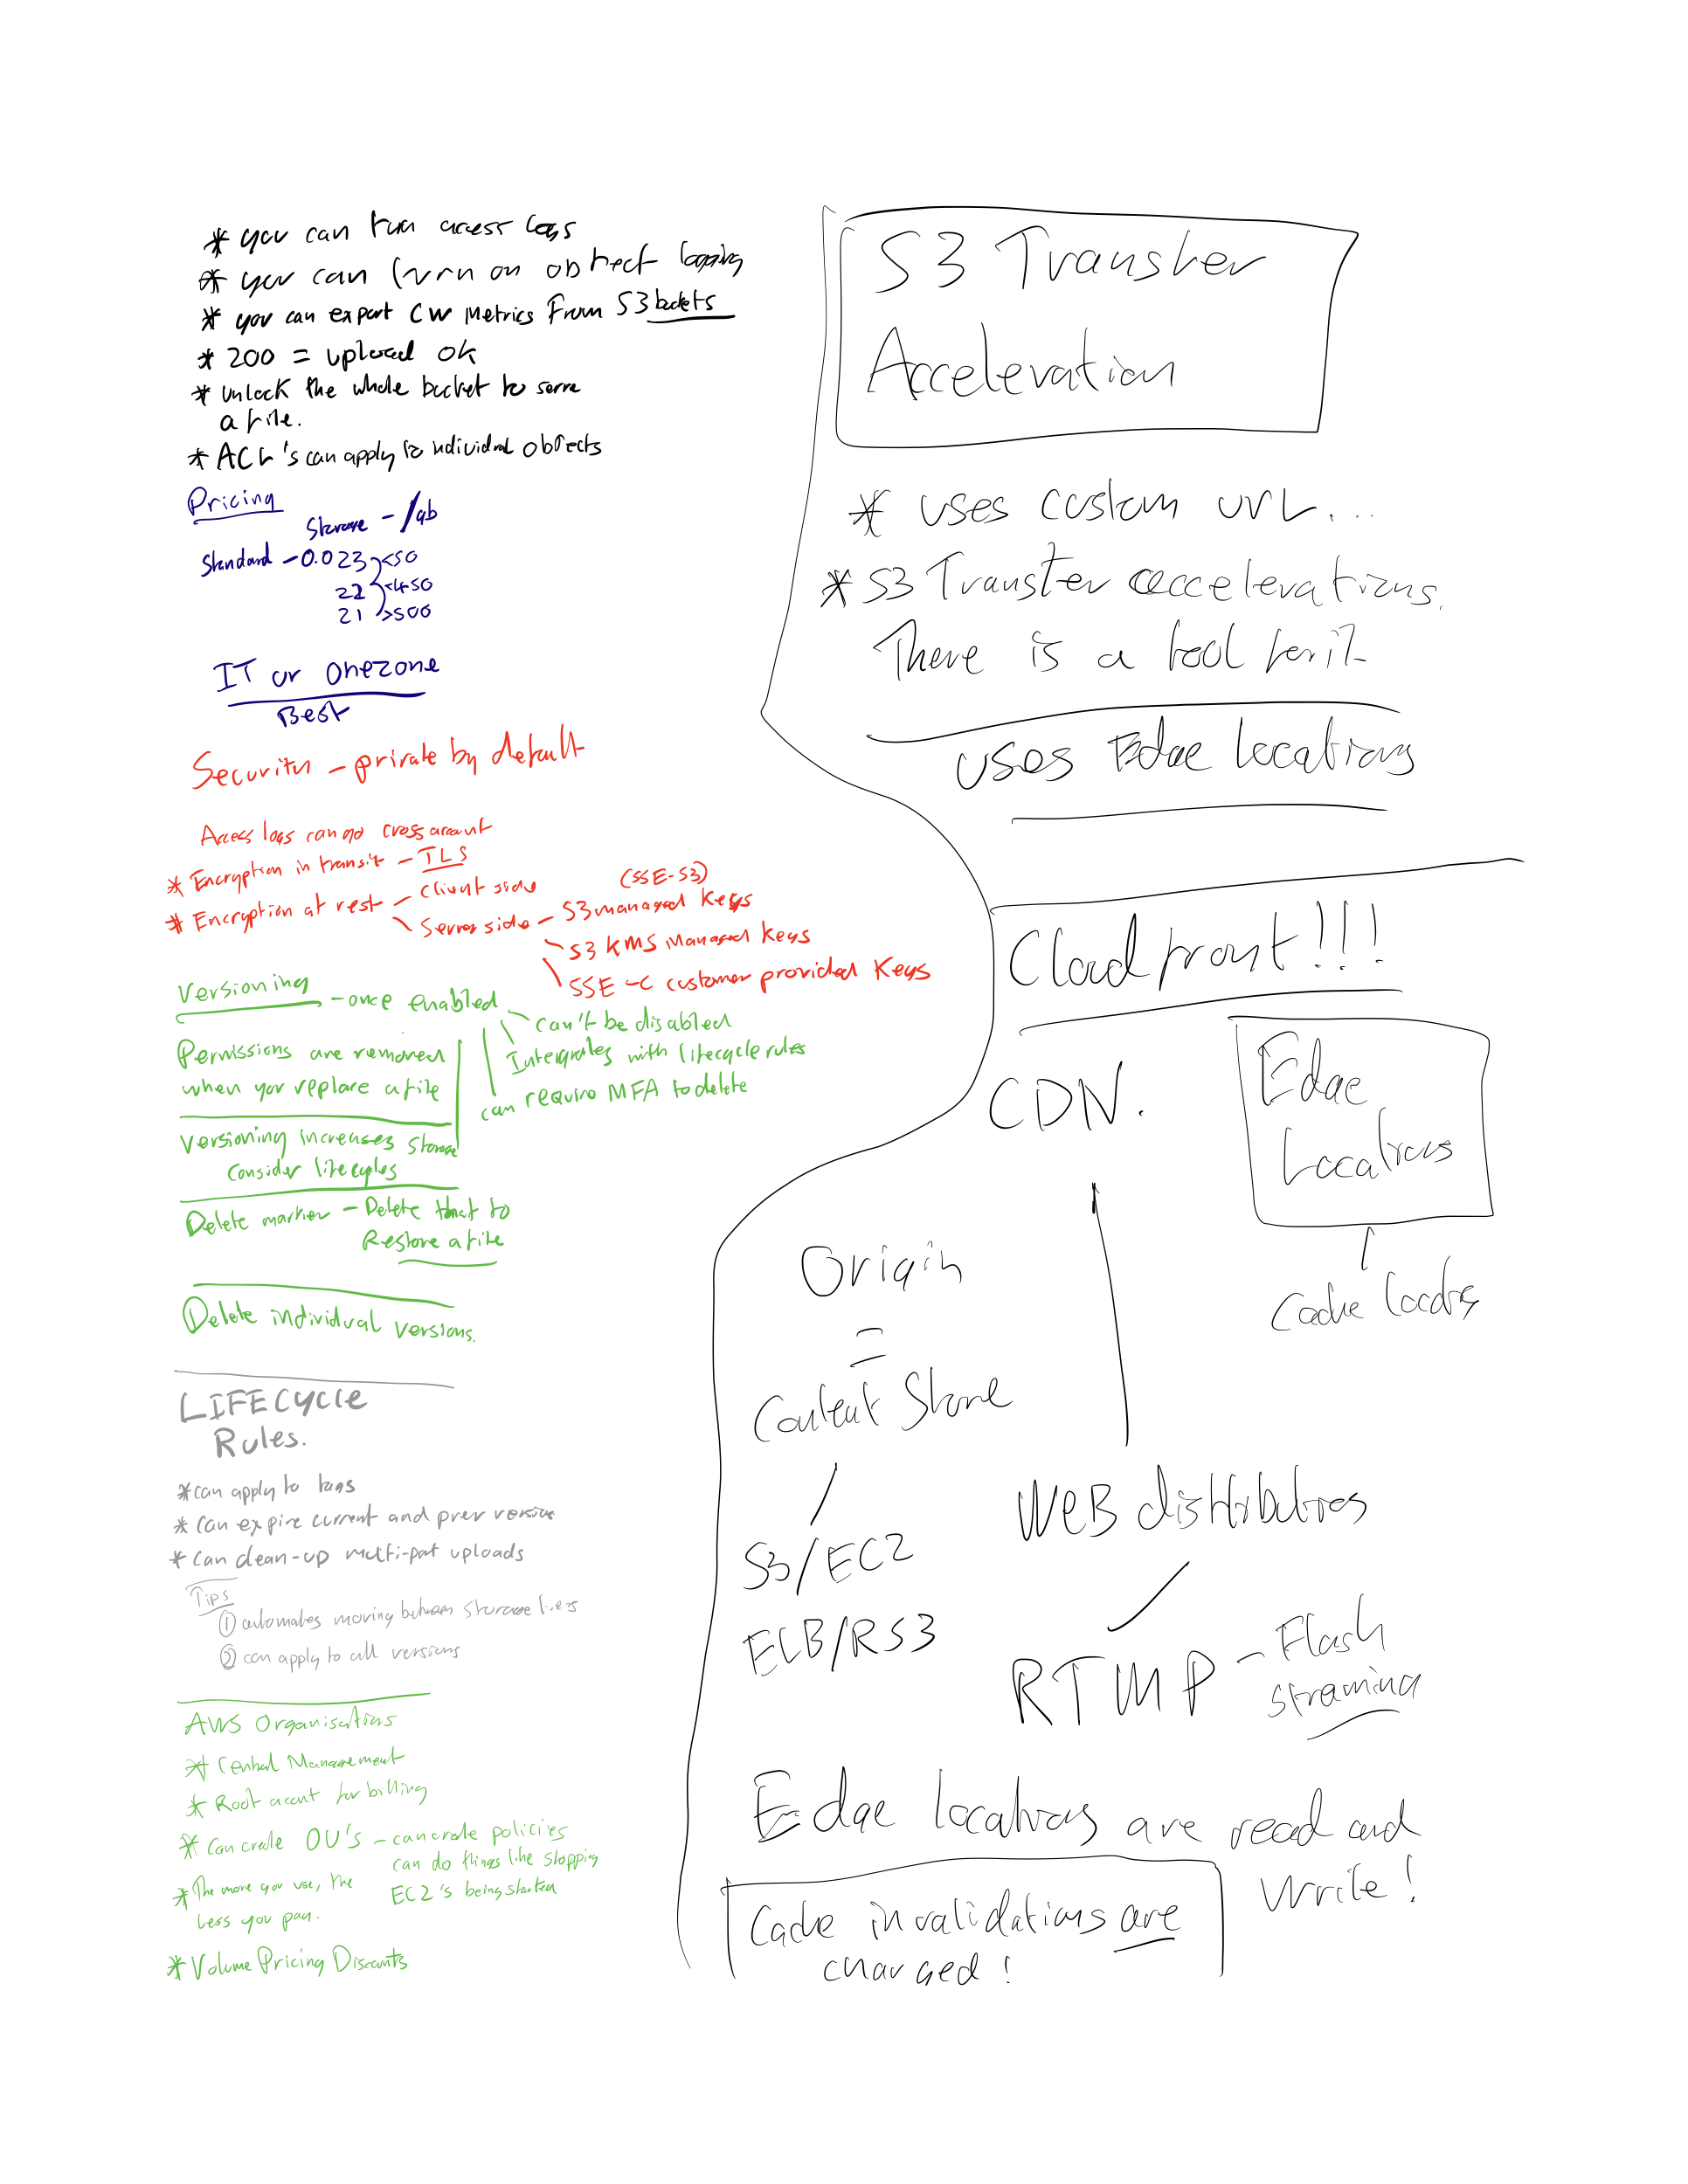 * you can turn access logs
* you can turn on object logging
* you can export CW Metrics From S3 buckets
* 200 = upload ok
* Unlock the whole bucket to serve
a file.
* ACL's can apply to individual objects
Pricing
Storage - /gb
Standard - 0.023 <50
22 <450
21 >500
IT or Onezone
Best
Security - private by default
Access logs can go cross account
* Encryption in transit - TLS
* Encryption at rest - client side
Server side - S3 managed Keys
(SSE-S3)
S3 KMS Managed Keys
SSE - C customer provided Keys
Versioning - once enabled
can't be disabled
Intergrates with lifecycle rules
can require MFA to delete
Permissions are removed
when you replace a file
Versioning increases storage
Consider lifecycles
Delete marker - Delete that to
Restore a file
Delete individual versions.
LIFECycle
Rules.
* can apply to tags
* can expire current and prev versions
* can clean-up multi-part uploads
Tips
① automates moving between storage tiers
② can apply to all versions
AWS Organisations
* Central Management
* Root account for billing
* Can create OU's - can create policies
can do things like stopping
EC2's being started
* The more you use, the
less you pay.
* Volume Pricing Discounts
S3 Transfer
Acceleration
* uses custom URL...
* S3 Transfer accelerations.
There is a tool for it
uses Edge locations
Cloudfront!!!
CDN.
Edge
Locations
Cache locations
Origin
=
Content Store
S3/EC2
ELB/R53
WEB distributions
RTMP - Flash
streaming
Edge locations are read and
write!
Cache invalidations are
charged!